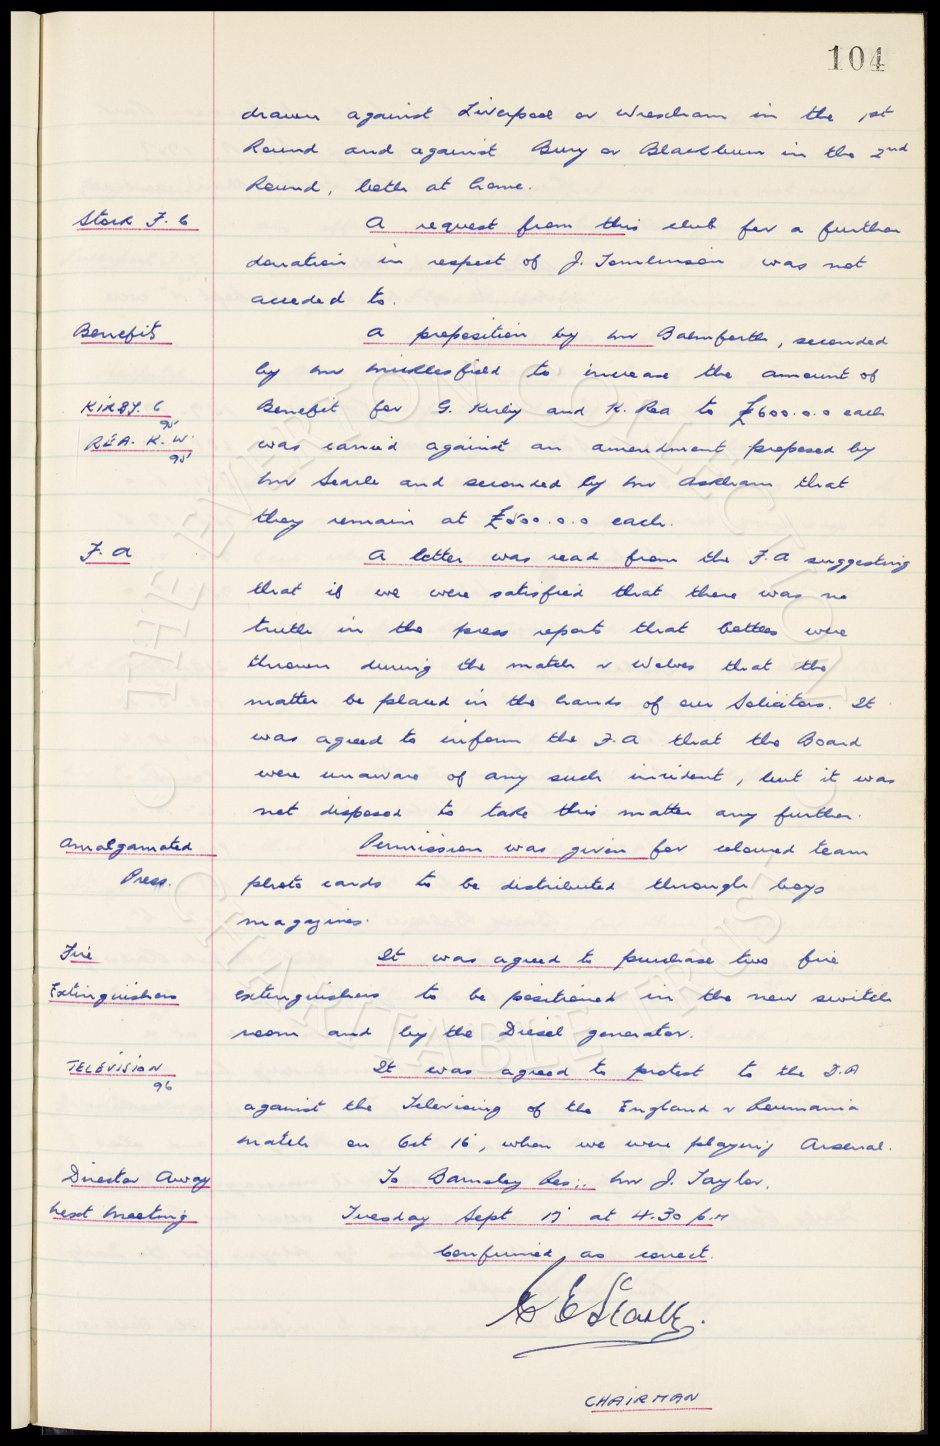 104
drawn against Liverpool or Wrexham in the 1st
Round and against Bury or Blackburn in the 2nd
Round, both at home.
Stork F.C
A request from this club for a further
donation in respect of J. Tomlinson was not
acceded to.
Benefits
A proposition by Mr Balmforth, seconded
by Mr Micklesfield to increase the amount of
KIRBY. G
95
Benefit for G. Kirby and K. Rea to £600.0.0 each
REA. K. W.
95
was carried against an amendment proposed by
Mr Searle and seconded by Mr Askham that
they remain at £500.0.0 each.
F.A
A letter was read from the F.A suggesting
that if we were satisfied that there was no
truth in the press reports that bottles were
thrown during the match v Wolves that the
matter be placed in the hands of our Solicitors. It
was agreed to inform the F.A that the Board
were unaware of any such incident, but it was
not disposed to take this matter any further.
Amalgamated
Press.
Permission was given for coloured team
photo cards to be distributed through boys
magazines.
Fire
Extinguishers
It was agreed to purchase two fire
extinguishers to be positioned in the new switch
room and by the Diesel generator.
TELEVISION
96
It was agreed to protest to the F.A
against the Televising of the England v Roumania
match on Oct 16, when we were playing Arsenal.
Director Away
To Barnsley Res:. Mr J. Taylor.
Next Meeting
Tuesday Sept 17 at 4.30 p.m
Confirmed as correct.
C E Searle.
CHAIRMAN
© THE EVERTON COLLECTION
CHARITABLE TRUST